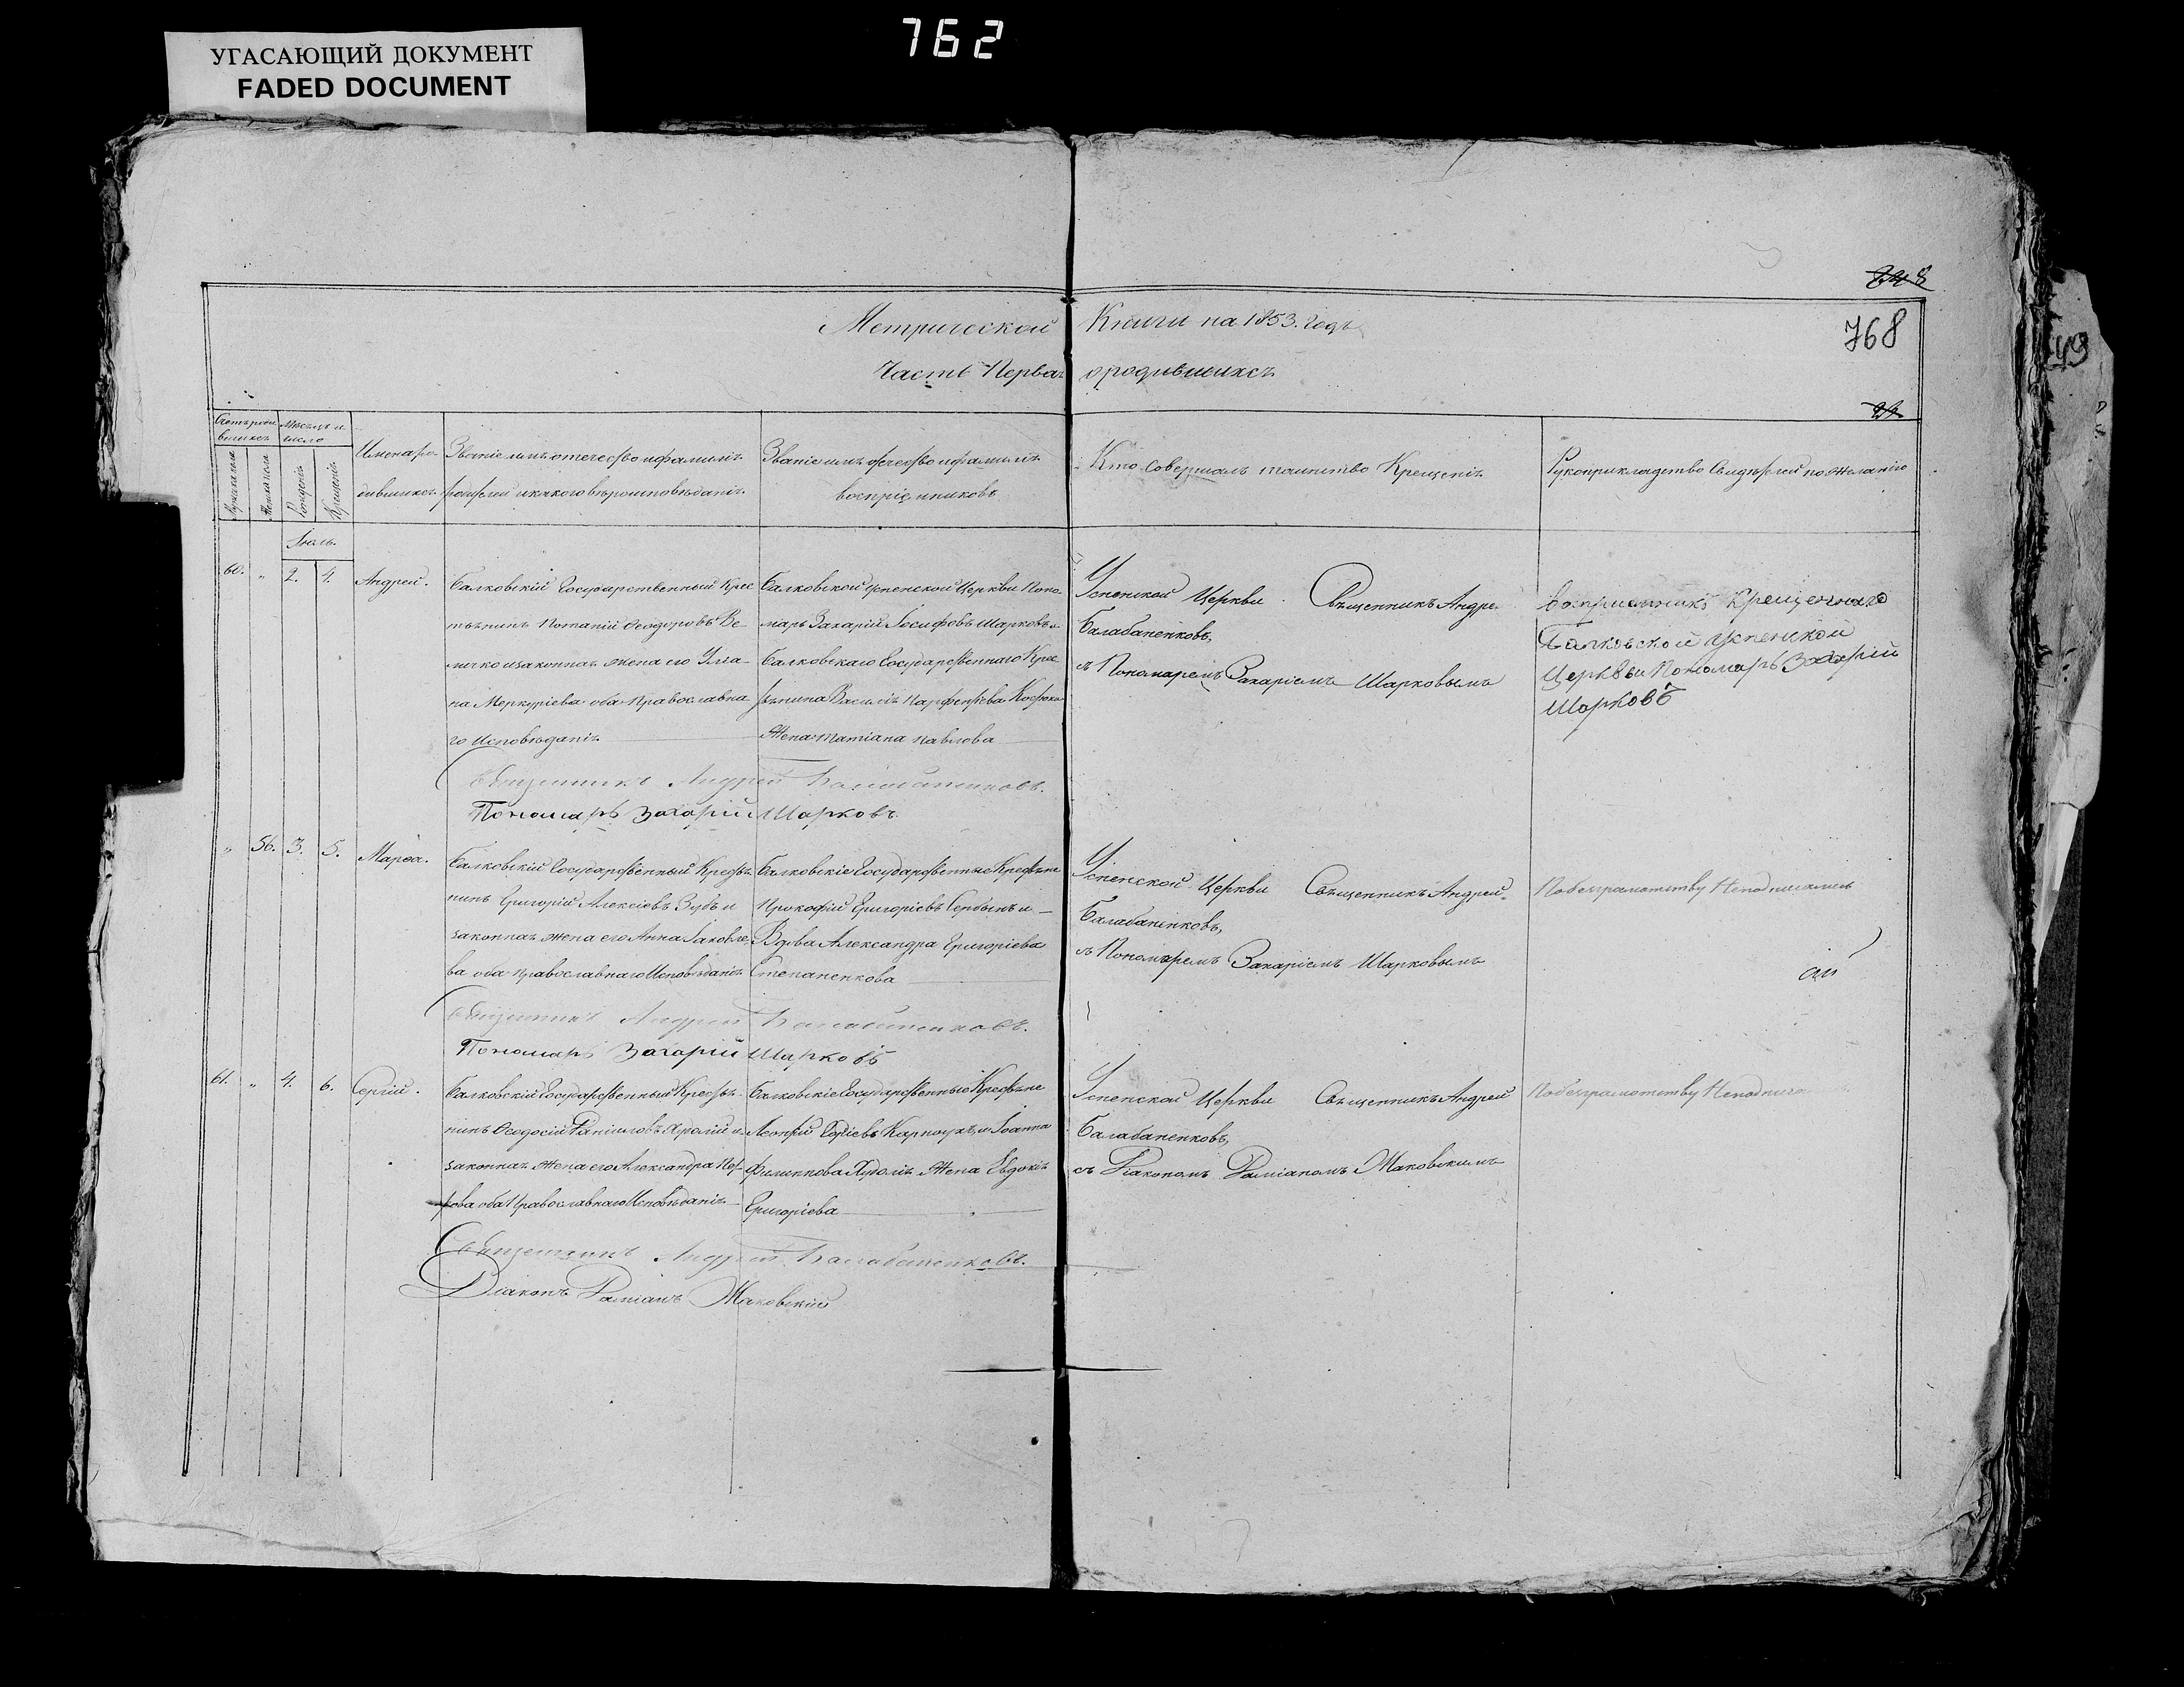 762
УГАСАЮЩИЙ ДОКУМЕНТ
FADED DOCUMENT
768
49
Метрической Книги на 1853. годъ
Часть Первая о родившихся
Счетъ роди
вшихся
Мужеска пола
Женска пола
Месяцъ и
число
Рожденія
Крещенія
Имена ро-
дившихся
Званіе имя отечество и фамилія
родителей и какого вѣроисповѣданія.
Званіе имя отечество и фамилія
воспріемниковъ
Кто совершалъ таинство Крещенія
Рукоприкладство Свидѣтелей по желанію
Іюль.
60. „ 2. 4. Андрей.
Балковскій Государственный Крес
тьянинъ Потапій Ѳеодоровъ Ве-
личко и законная жена его Улиа-
на Меркуріева оба Православна
го Исповѣданія
Балковской Успенской Церкви Поно-
марь Захарій Іосифовъ Шарковъ и
Балковскаго Государственного Крес
тьянина Василія Парфентіева
Жена Татіана Павлова
Успенской Церкви Священникъ Андрей
Балабаненковъ,
съ Пономаремъ Захаріемъ Шарковымъ
воспріемникъ Крещенаго
Балковской Успенской
Церкви Пономарь Захарій
Шарковъ
Священникъ Андрей Балабаненковъ.
Пономарь Захарій Шарковъ.
„ 56. 3. 5. Марѳа.
Балковскій Государственный Крестья
нинъ Григорій Алексіевъ Зубъ и
законная жена его Анна Іаковле-
ва оба православнаго Исповѣданія
Балковскіе Государственные Крестьяне
Прокофій Григоріевъ Сербинъ и
Вдова Александра Григоріева
Степаненкова
Успенской Церкви Священникъ Андрей
Балабаненковъ,
съ Пономаремъ Захаріемъ Шарковымъ
По безграмотству Неподписались
Священникъ Андрей Балабаненковъ.
Пономарь Захарій Шарковъ
61. „ 4. 6. Сергій.
Балковскій Государственный Крестья-
нинъ Ѳеодосій Даніиловъ и
законная жена его Александра Пет-
рова оба Православнаго Исповѣданія
Балковскіе Государственные Крестьяне
Леонтій и Іоанна
Филиппова Жена Евдокія
Григоріева
Успенской Церкви Священникъ Андрей
Балабаненковъ,
съ Діакономъ Даміаномъ Маковскимъ
По безграмотству
Священникъ Андрей Балабаненковъ.
Діаконъ Даміанъ Маковскій